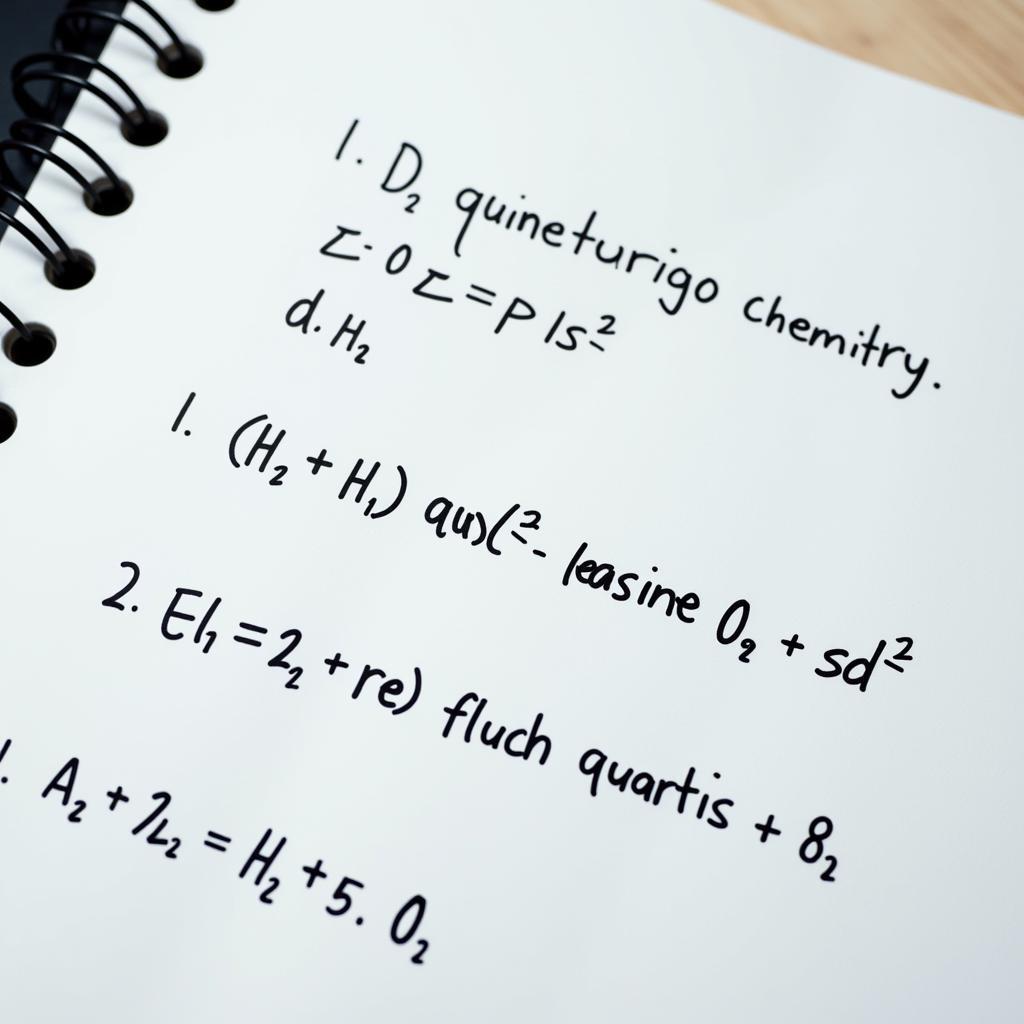 1. D₂ quineturigo chemitry.
Σ· 0 Σ = P 1s²
d. H₂
1. (H₂ + H₁) leasine O₂ + sd²
2. El₁ = 2₂ + re) fluch quartis + 8₂
A₂ + = H₂ + 5. O₂